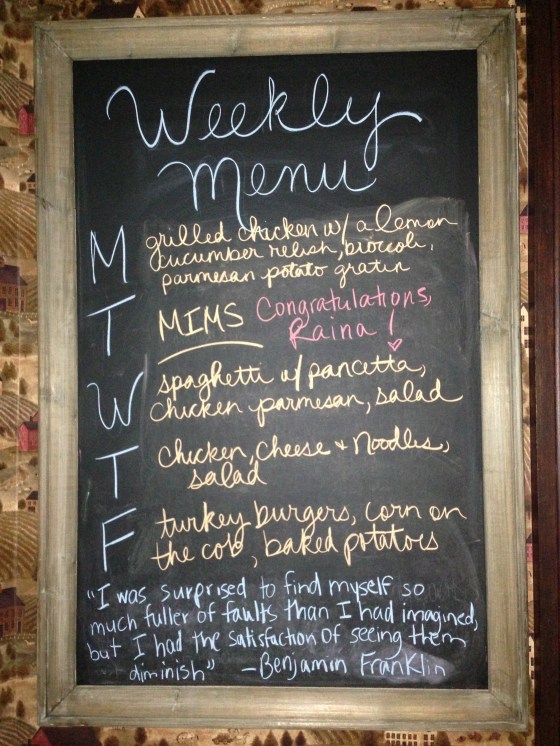 Weekly
Menu
M grilled chicken w/ a lemon
cucumber relish, broccoli,
parmesan potato gratin
T MIMS Congratulations,
Raina!
W spaghetti w/ pancetta,
chicken parmesan, salad
T chicken, cheese + noodles,
salad
F turkey burgers, corn on
the cob, baked potatoes
"I was surprised to find myself so
much fuller of faults than I had imagined,
but I had the satisfaction of seeing them
diminish" -Benjamin Franklin